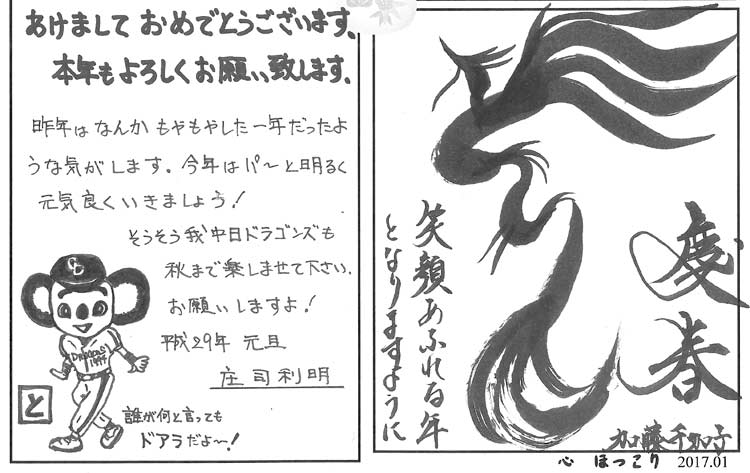 あけまして おめでとうございます。
本年もよろしくお願い致します。
昨年は なんか もやもやした一年だったよ
うな気がします。今年はパ～と明るく
元気良くいきましょう！
そうそう我中日ドラゴンズも
秋まで楽しませて下さい。
お願いしますよ！
平成29年 元旦
庄司利明
CD
DRAGONS
1994
と
誰が何と言っても
ドアラだよ～！
慶春
笑顔あふれる年
となりますように
加藤千加子
心 ほっこり 2017.01